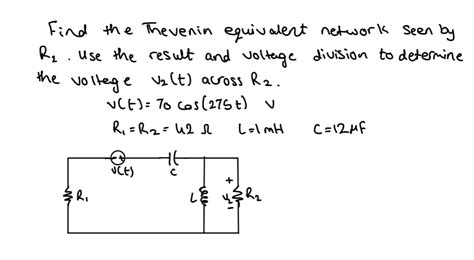 Find the Thevenin equivalent network seen by
R₂. Use the result and voltage division to determine
the voltage v₂(t) across R₂.
v(t)= 70 cos(275t) V
R₁=R₂= 42 Ω L=1mH C=12μF
v(t) C
R₁ L + v₂ - R₂